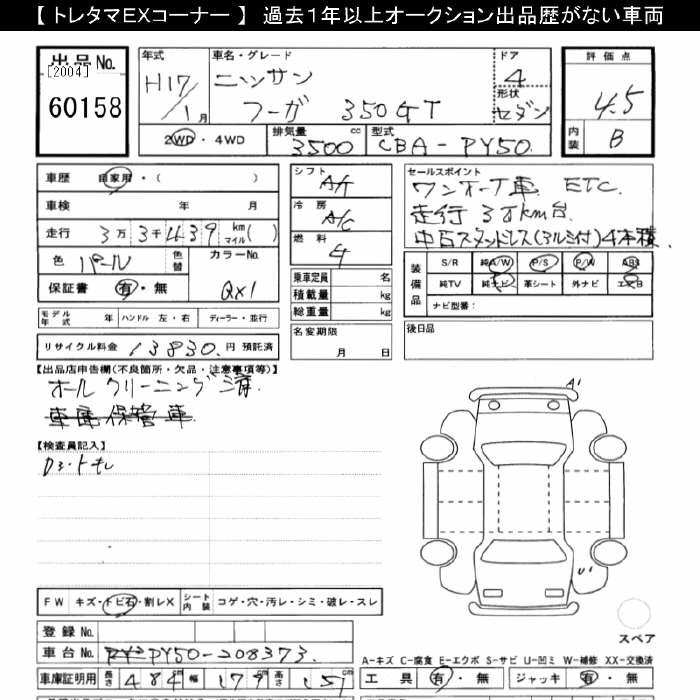 【 トレタマEXコーナー 】 過去1年以上オークション出品歴がない車両
出品No.
[2004]
60158
年式 車名・グレード ドア 評価点
H17/1月 ニッサン 4 4.5
フーガ 350GT 形状 セダン
2WD・4WD 排気量 3500 cc 型式 CBA-PY50 内装 B
車歴 自家用・( )
車検 年 月
走行 3万3千439 km マイル( )
色 パール 色替 カラーNo. QX1
保証書 有・無
モデル年式 年 ハンドル 左・右 ディーラー・並行
リサイクル料金 13830 円 預託済
シフト A/T
冷房 A/C
燃料
乗車定員 名
積載量 kg
総重量 kg
名変期限
月 日
セールスポイント
ワンオーナ車 ETC
走行3万km台
中古スタッドレス(アルミ付)4本積
装備品 S/R 純A/W P/S P/W ABS
純TV 純ナビ 革シート 外ナビ エアB
ナビ型番:
後日品
【出品店申告欄(不良箇所・欠品・注意事項等)】
ホールクリーニング済
車庫保管車
【検査員記入】
A1
U1
FW キズ・トビ石・割レX シート内装 コゲ・穴・汚レ・シミ・破レ・スレ
登録No.
車台No. PY50-208373
スペア
A-キズ C-腐食 E-エクボ S-サビ U-凹ミ W-補修 XX-交換済
車庫証明用 長さ 484 幅 179 高さ 151 cm
工具 有・無 ジャッキ 有・無